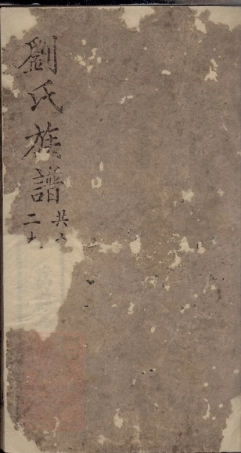 劉氏族譜
共
二